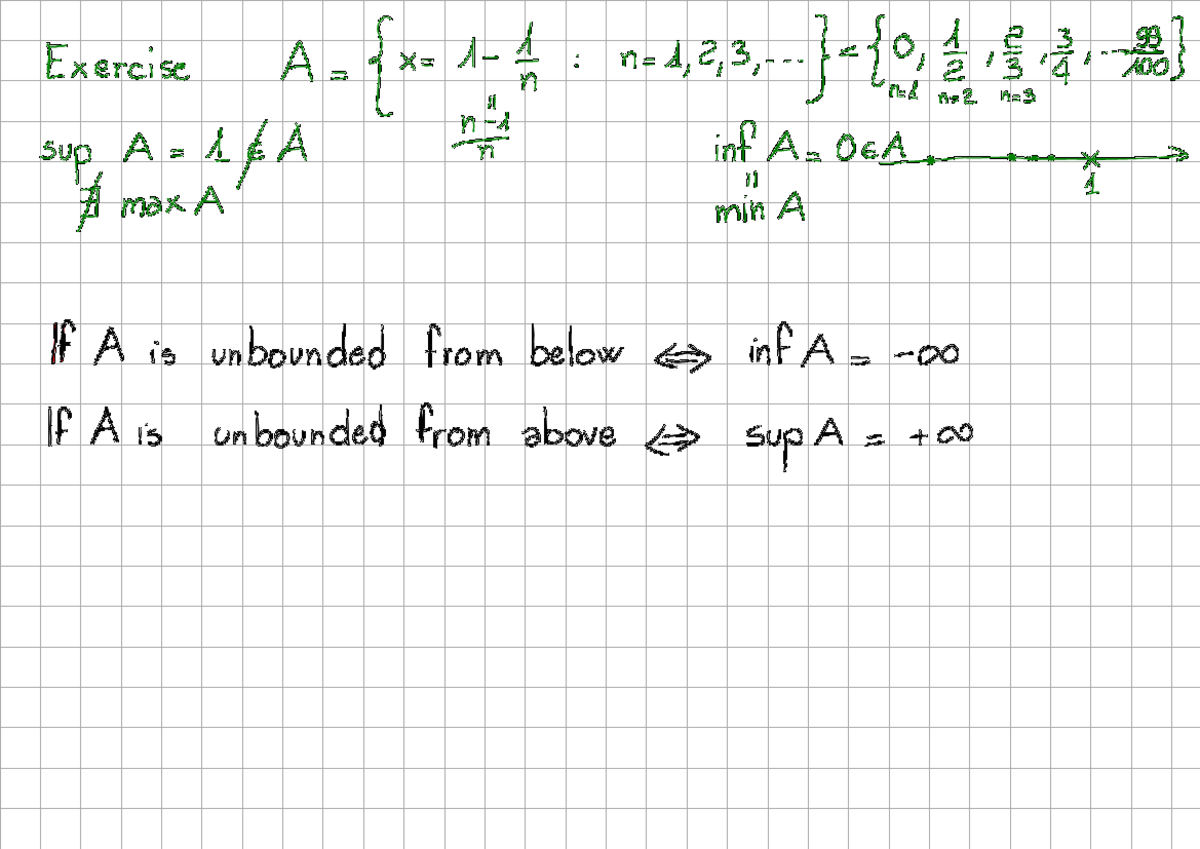 Exercise A = { x = 1 - 1/n : n = 1, 2, 3, ... } = { 0, 1/2, 2/3, 3/4, ... 99/100 }
n=1 n=2 n=3
" n-1/n
sup A = 1 ∉ A inf A = 0 ∈ A
" 1
∄ max A min A
If A is unbounded from below ⇔ inf A = -∞
If A is unbounded from above ⇔ sup A = +∞